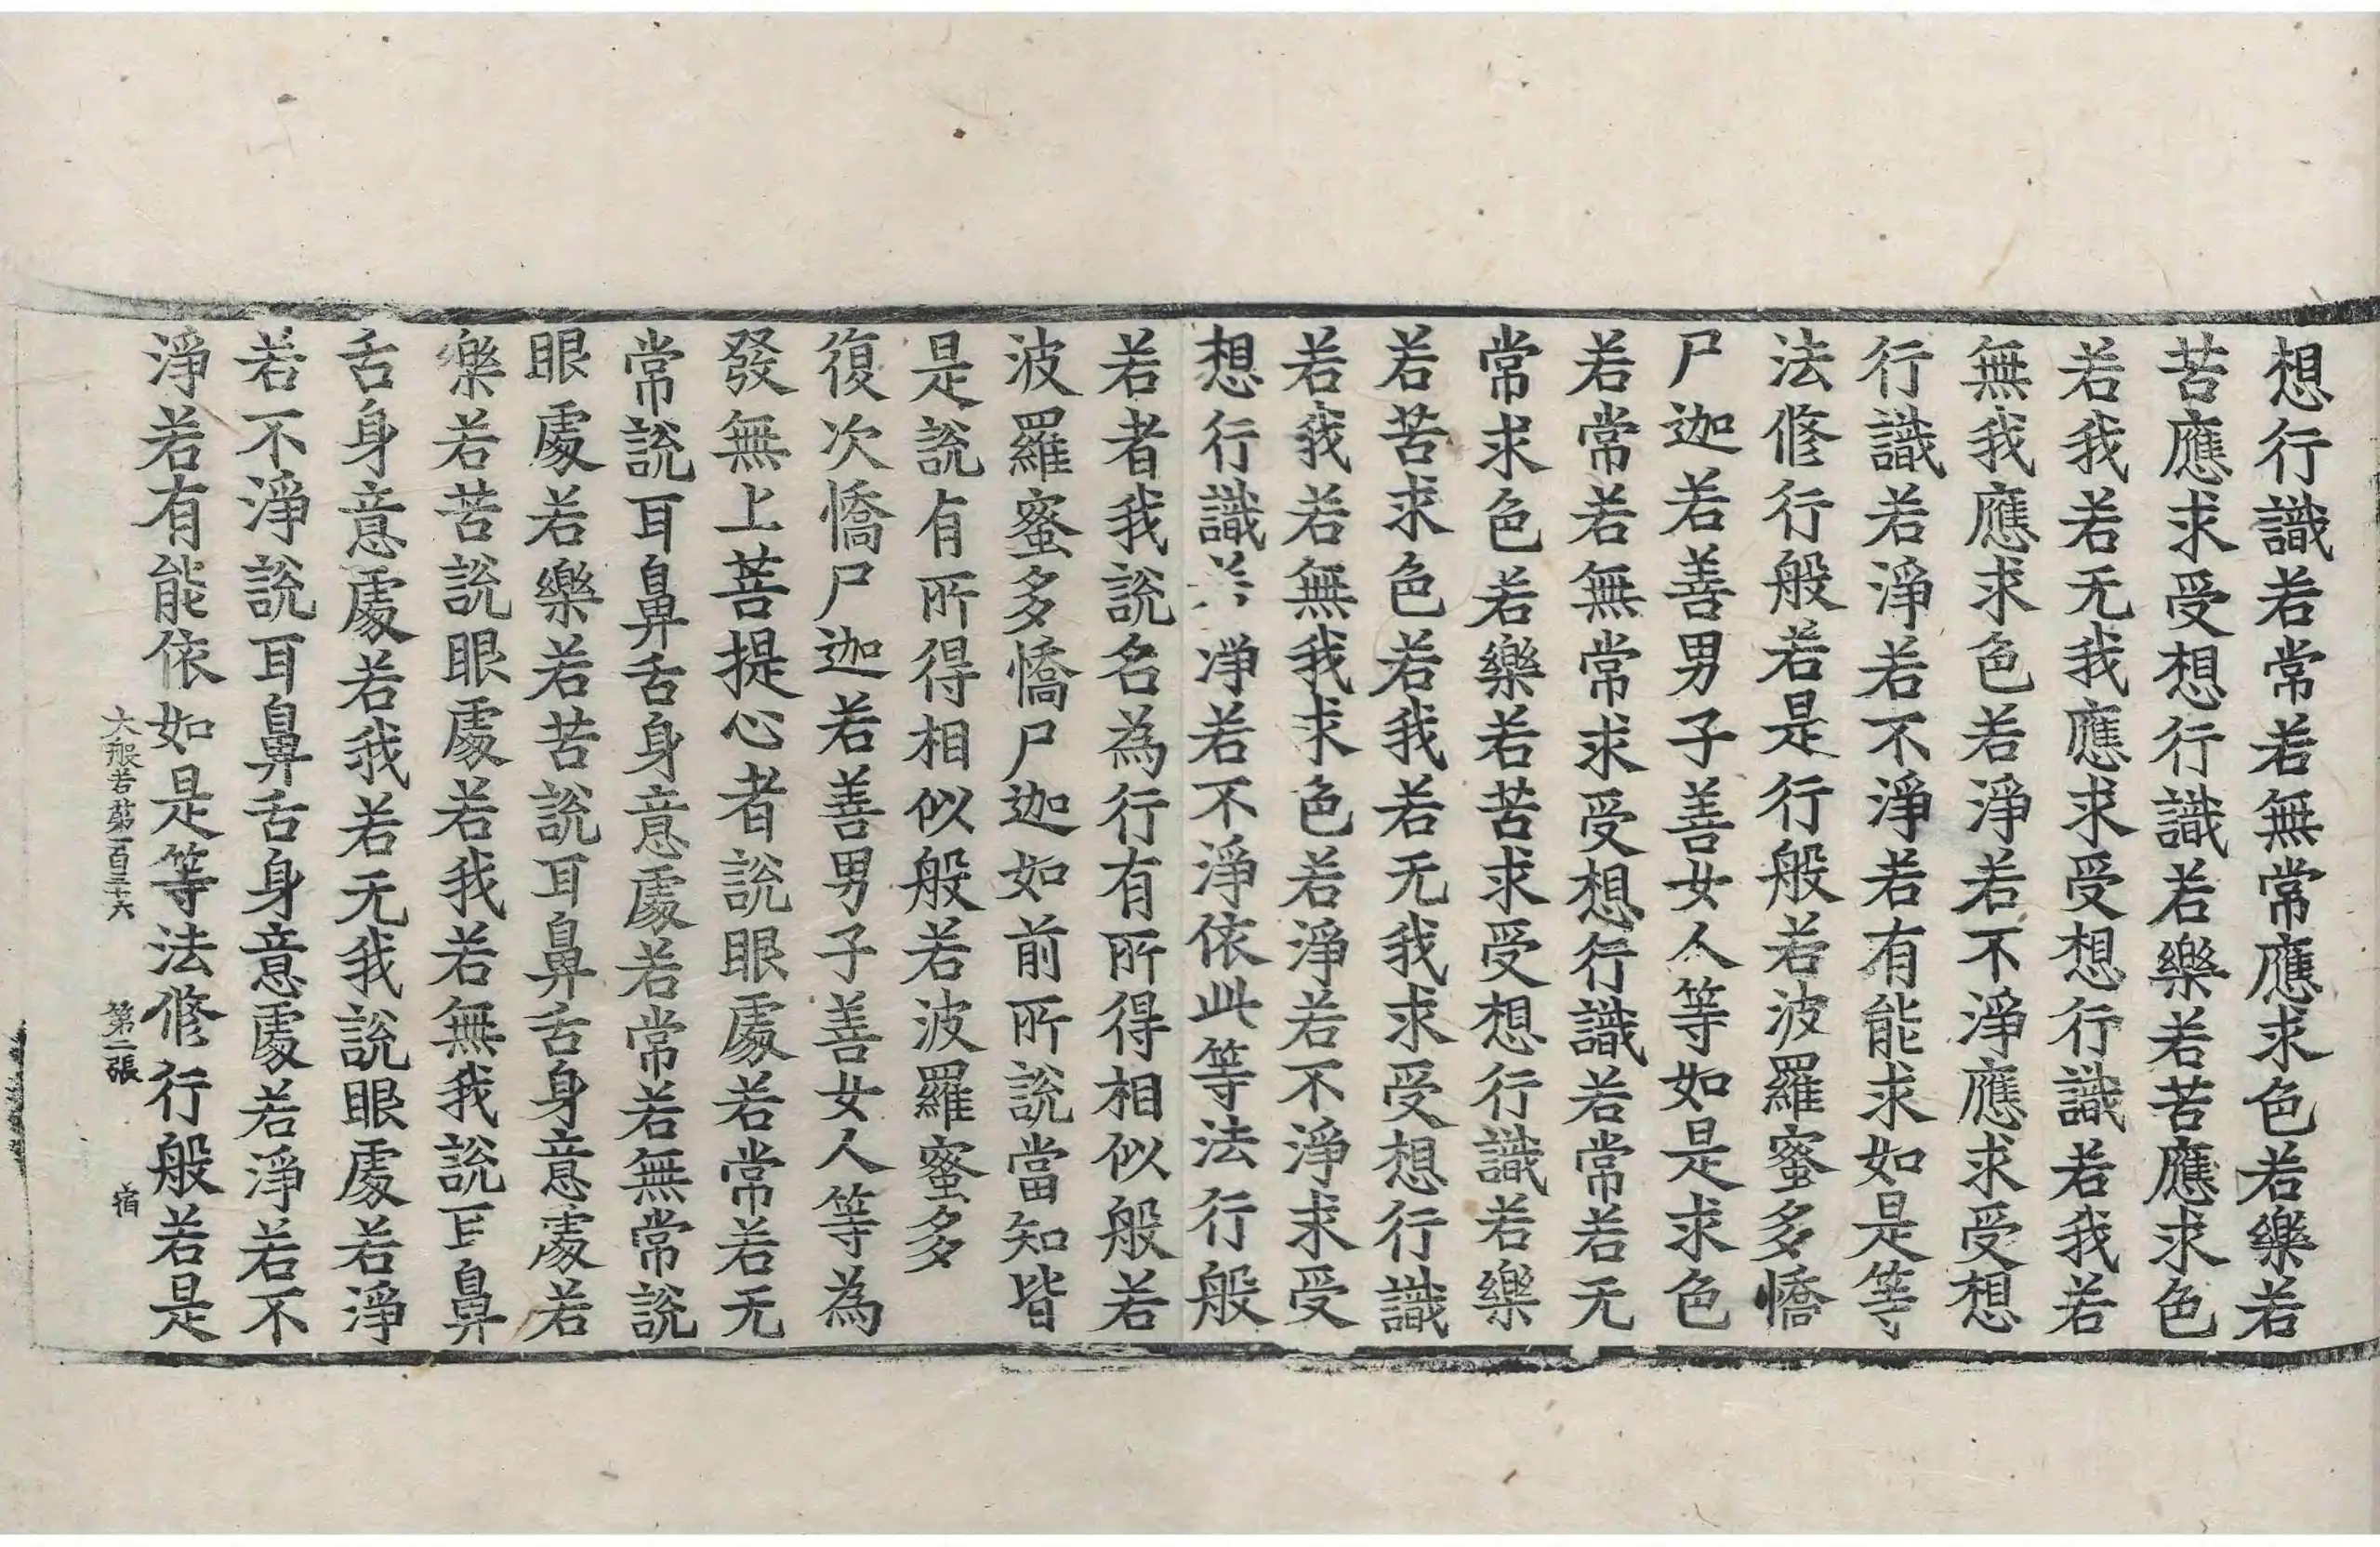 想行識若常若無常應求色若樂若
苦應求受想行識若樂若苦應求色
若我若无我應求受想行識若我若
無我應求色若淨若不淨應求受想
行識若淨若不淨若有能求如是等
法修行般若是行般若波羅蜜多憍
尸迦若善男子善女人等如是求色
若常若無常求受想行識若常若无
常求色若樂若苦求受想行識若樂
若苦求色若我若无我求受想行識
若我若無我求色若淨若不淨求受
想行識 淨若不淨依此等法行般
若者我說名為行有所得相似般若
波羅蜜多憍尸迦如前所說當知皆
是說有所得相似般若波羅蜜多
復次憍尸迦若善男子善女人等為
發無上菩提心者說眼處若常若无
常說耳鼻舌身意處若常若無常說
眼處若樂若苦說耳鼻舌身意處若
樂若苦說眼處若我若無我說耳鼻
舌身意處若我若无我說眼處若淨
若不淨說耳鼻舌身意處若淨若不
淨若有能依如是等法修行般若是
大般若第一百三十六 第二張 宿